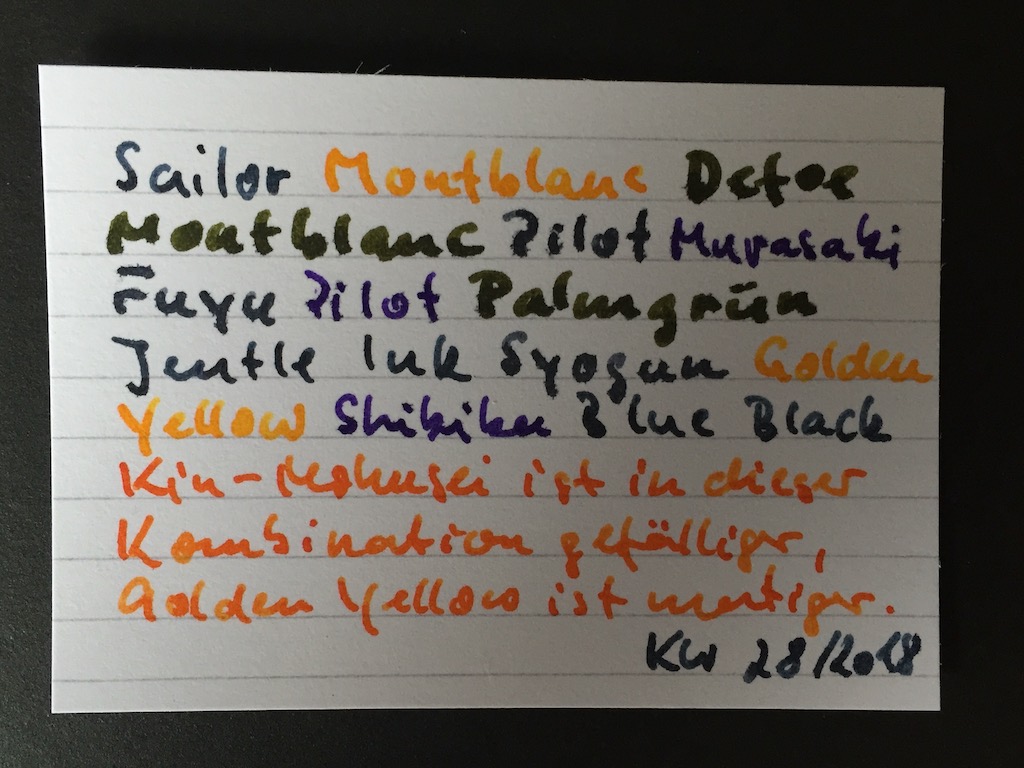 Sailor Montblanc Detoe
Montblanc Pilot Murasaki
Fuyu Pilot Palmgrün
Jentle Ink Syogun Golden
Yellow Shikiku Blue Black
Kin-Mokusei ist in dieser
Kombination gefälliger,
Golden Yellow ist mutiger.
KW 28/2018